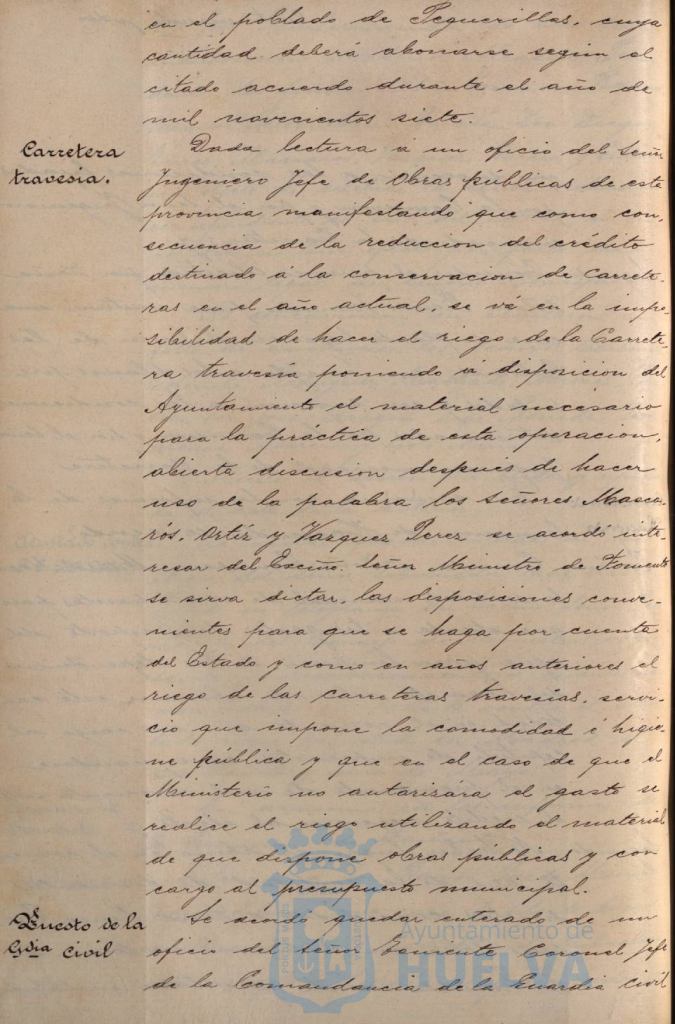 en el poblado de Peguerillas, cuya
cantidad deberá abonarse segun el
citado acuerdo durante el año de
mil novecientos siete.
Carretera
travesia.
Dada lectura á un oficio del Señor
Ingeniero Jefe de Obras públicas de esta
provincia manifestando que como con-
secuencia de la reduccion del crédito
destinado á la conservacion de Carrete-
ras en el año actual, se vé en la impo-
sibilidad de hacer el riego de la Carrete-
ra travesía poniendo á disposicion del
Ayuntamiento el material necesario
para la práctica de esta operacion,
abierta discusion después de hacer
uso de la palabra los Señores Masca-
rós, Ortíz y Vazquez Perez se acordó inte-
resar del Excmo. Señor Ministro de Fomento
se sirva dictar, las disposiciones conve-
nientes para que se haga por cuenta
del Estado y como en años anteriores el
riego de las carreteras travesías, servi-
cio que impone la comodidad é higie-
ne pública y que en el caso de que el
Ministerio no autorizára el gasto se
realise el riego utilizando el material
de que dispone obras públicas y con
cargo al presupuesto municipal.
Puesto de la
Gdia Civil
Se acordó quedar enterado de un
oficio del Señor Teniente Coronel Jefe
de la Comandancia de la Guardia civil
Ayuntamiento de
HUELVA